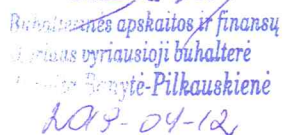 Buhalterinės apskaitos ir finansų
vyriausioji buhalterė
Bonytė-Pilkauskienė
2019-04-12